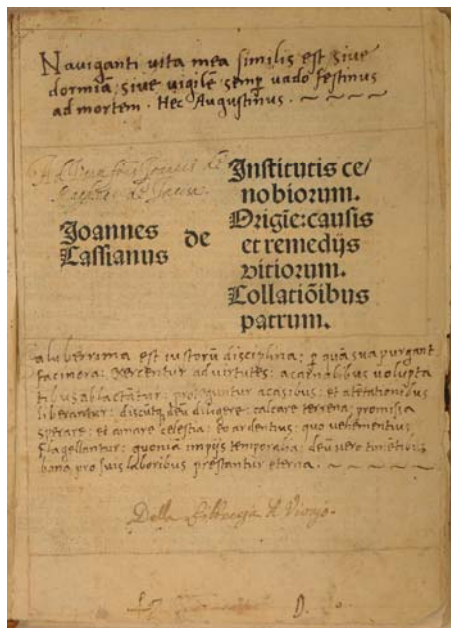 Nauiganti uita mea similis est siue
dormiā, siue uigilē semp uado festinus
ad mortem. Hec Augustinus. ~ ~ ~ ~
Joannes
Cassianus
de
Institutis ce/
nobiorum.
Origīe: causis
et remedijs
vitiorum.
Collatiōibus
patrum.
aluberrima est iustorū disciplina: p quā sua purgant
facinora: Exercentur ad virtutes: a carnalibus uolupta
tibus ablactātur: a casibus: et a tētationibus
liberantur: discūt deū diligere: calcare terrena; promissa
sperare: et amare celestia: Eo ardentius: quo uehementius
flagellantur: quoniā impijs temporalia: deū uero timētibus
bona pro suis laboribus prestantur eterna. ~ ~ ~ ~
Della